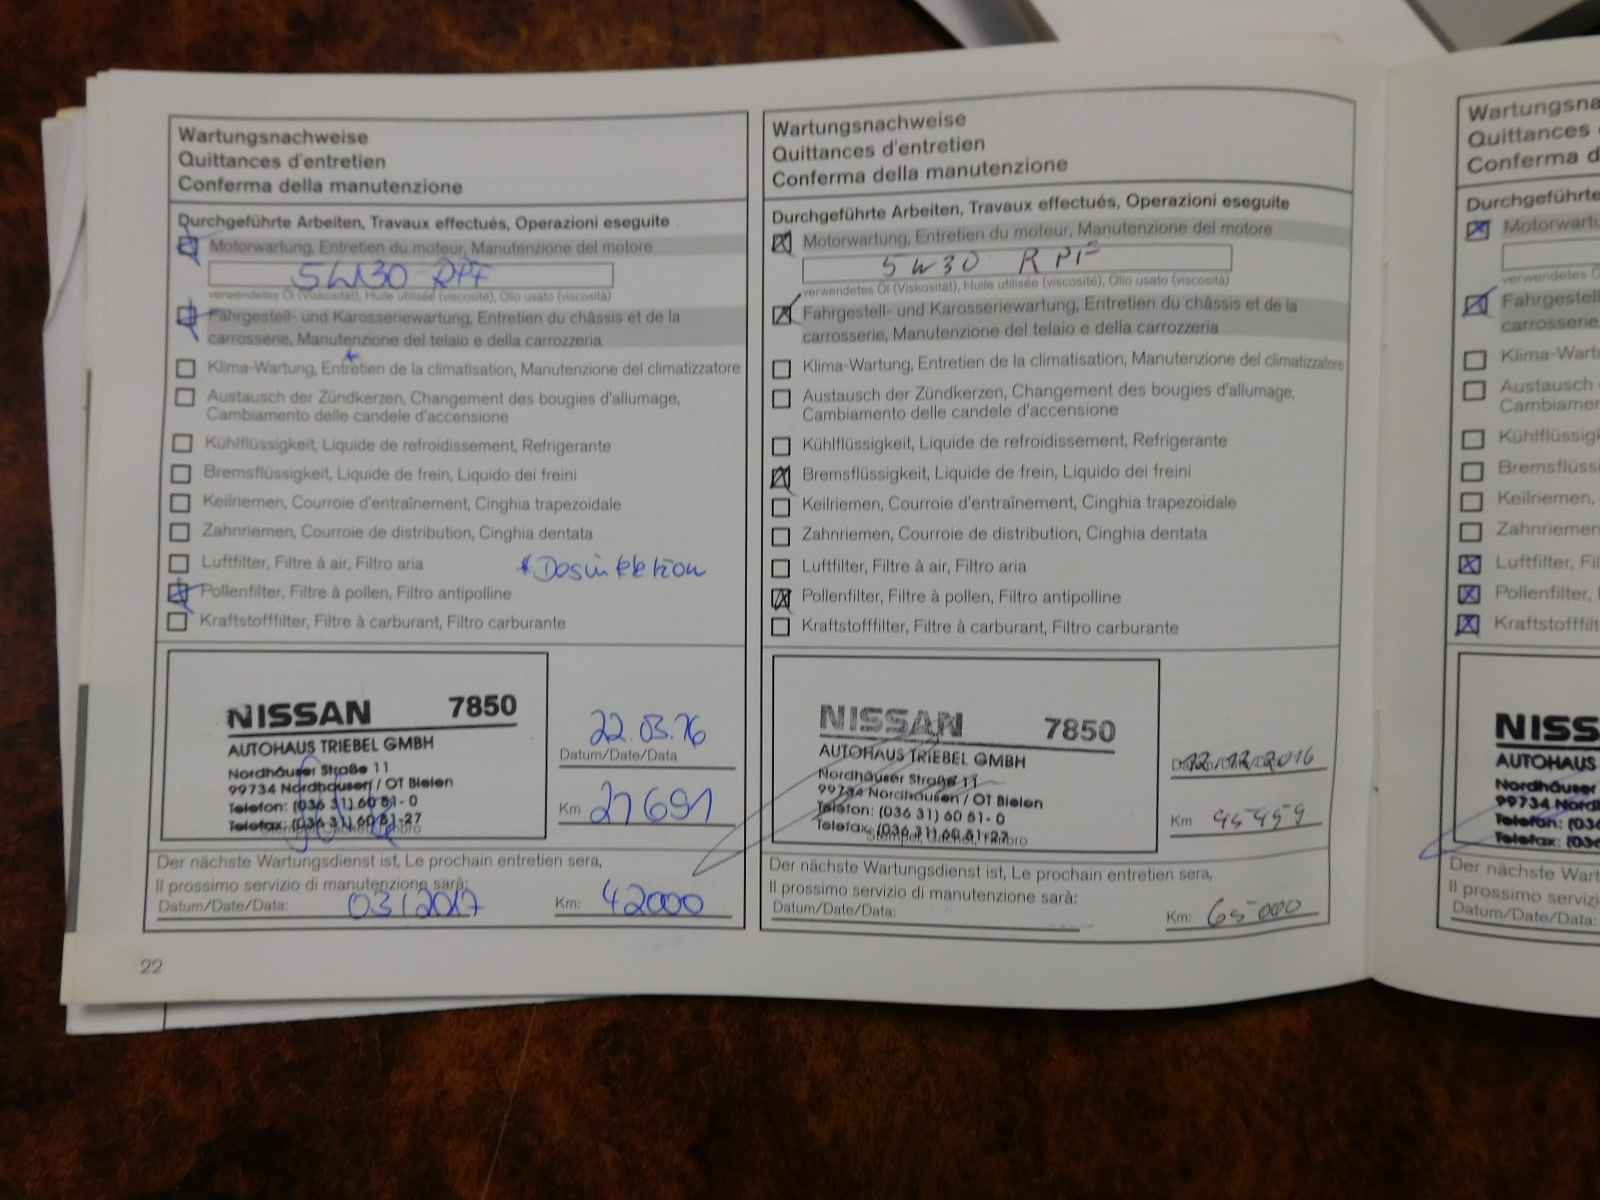 Wartungsnachweise
Quittances d'entretien
Conferma della manutenzione
Durchgeführte Arbeiten, Travaux effectués, Operazioni eseguite
Motorwartung, Entretien du moteur, Manutenzione del motore
5W30 DPF
verwendetes Öl (Viskosität), Huile utilisée (viscosité), Olio usato (viscosità)
Fahrgestell- und Karosseriewartung, Entretien du châssis et de la
carrosserie, Manutenzione del telaio e della carrozzeria
*
Klima-Wartung, Entretien de la climatisation, Manutenzione del climatizzatore
Austausch der Zündkerzen, Changement des bougies d'allumage,
Cambiamento delle candele d'accensione
Kühlflüssigkeit, Liquide de refroidissement, Refrigerante
Bremsflüssigkeit, Liquide de frein, Liquido dei freini
Keilriemen, Courroie d'entraînement, Cinghia trapezoidale
Zahnriemen, Courroie de distribution, Cinghia dentata
Luftfilter, Filtre à air, Filtro aria
*Desinfektion
Pollenfilter, Filtre à pollen, Filtro antipolline
Kraftstofffilter, Filtre à carburant, Filtro carburante
NISSAN 7850
AUTOHAUS TRIEBEL GMBH
Nordhäuser Straße 11
99734 Nordhausen / OT Bielen
Telefon: (036 31) 60 81- 0
Telefax: (036 31) 60 81-27
22.03.16
Datum/Date/Data
Km 27691
Der nächste Wartungsdienst ist, Le prochain entretien sera,
Il prossimo servizio di manutenzione sarà:
Datum/Date/Data: 03/2017 Km: 42000
22
Wartungsnachweise
Quittances d'entretien
Conferma della manutenzione
Durchgeführte Arbeiten, Travaux effectués, Operazioni eseguite
Motorwartung, Entretien du moteur, Manutenzione del motore
5W30 RPF
verwendetes Öl (Viskosität), Huile utilisée (viscosité), Olio usato (viscosità)
Fahrgestell- und Karosseriewartung, Entretien du châssis et de la
carrosserie, Manutenzione del telaio e della carrozzeria
Klima-Wartung, Entretien de la climatisation, Manutenzione del climatizzatore
Austausch der Zündkerzen, Changement des bougies d'allumage,
Cambiamento delle candele d'accensione
Kühlflüssigkeit, Liquide de refroidissement, Refrigerante
Bremsflüssigkeit, Liquide de frein, Liquido dei freini
Keilriemen, Courroie d'entraînement, Cinghia trapezoidale
Zahnriemen, Courroie de distribution, Cinghia dentata
Luftfilter, Filtre à air, Filtro aria
Pollenfilter, Filtre à pollen, Filtro antipolline
Kraftstofffilter, Filtre à carburant, Filtro carburante
NISSAN 7850
AUTOHAUS TRIEBEL GMBH
Nordhäuser Straße 11
99734 Nordhausen / OT Bielen
Telefon: (036 31) 60 81- 0
Telefax: (036 31) 60 81-27
Stempel, Cachet, Timbro
Km 45459
Der nächste Wartungsdienst ist, Le prochain entretien sera,
Il prossimo servizio di manutenzione sarà:
Datum/Date/Data:
Km: 65000
Wartungsna
Quittances
Conferma d
Durchgeführte
Motorwartu
verwendetes Ö
Fahrgestell
carrosserie
Klima-Wart
Austausch
Cambiamen
Kühlflüssigk
Bremsflüssi
Keilriemen,
Zahnriemen
Luftfilter, Fil
Pollenfilter,
Kraftstofffilt
NISS
AUTOHAUS
Nordhäuser
99734 Nord
Telefon: (03
Telefax: (03
Der nächste Wart
Il prossimo serviz
Datum/Date/Data: